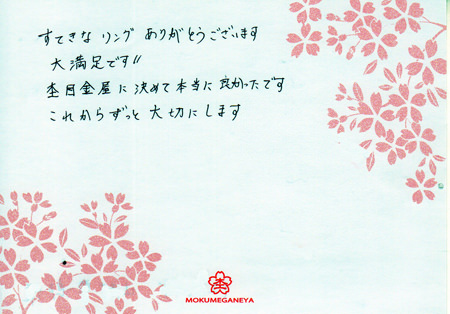 すてきな リング ありがとうございます
大満足です!!
杢目金屋に決めて本当に良かったです
これからずっと 大切にします
杢
MOKUMEGANEYA